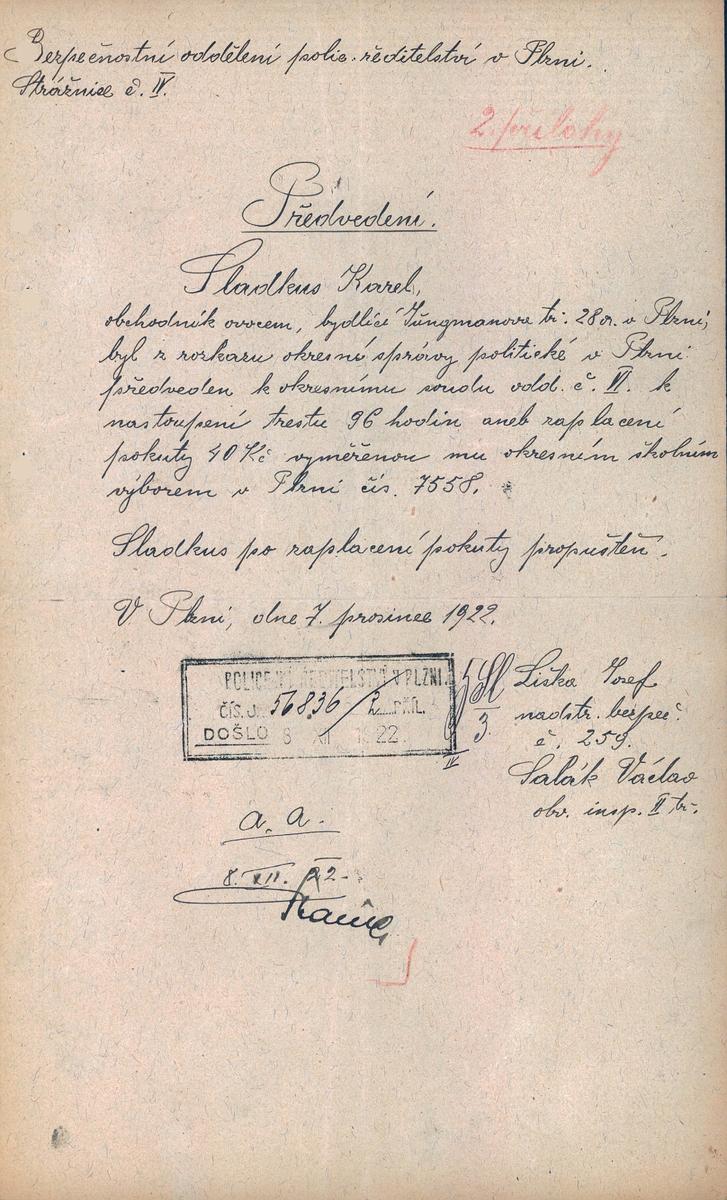 Bezpečnostní oddělení polic. ředitelství v Plzni.
Strážnice č. IV.
2 přílohy
Předvedení.
Sladkus Karel,
obchodník ovocem, bydlící Jungmanova tř. 28 v Plzni,
byl z rozkazu okresní správy politické v Plzni
předveden k okresnímu soudu odd. č. VI. k
nastoupení trestu 96 hodin aneb zaplacení
pokuty 40 Kč vyměřenou mu okresním školním
výborem v Plzni čís. 7558.
Sladkus po zaplacení pokuty propuštěn.
V Plzni, dne 7. prosince 1922.
POLICEJNÍ ŘEDITELSTVÍ V PLZNI.
ČÍS. J. 56836/2 PŘÍL.
DOŠLO 8 XII 1922
3
IV
Liška Josef
nadstr. bezpeč.
č. 259.
Salák Václav
obv. insp. II tř.
a. a.
8. XII. 22.